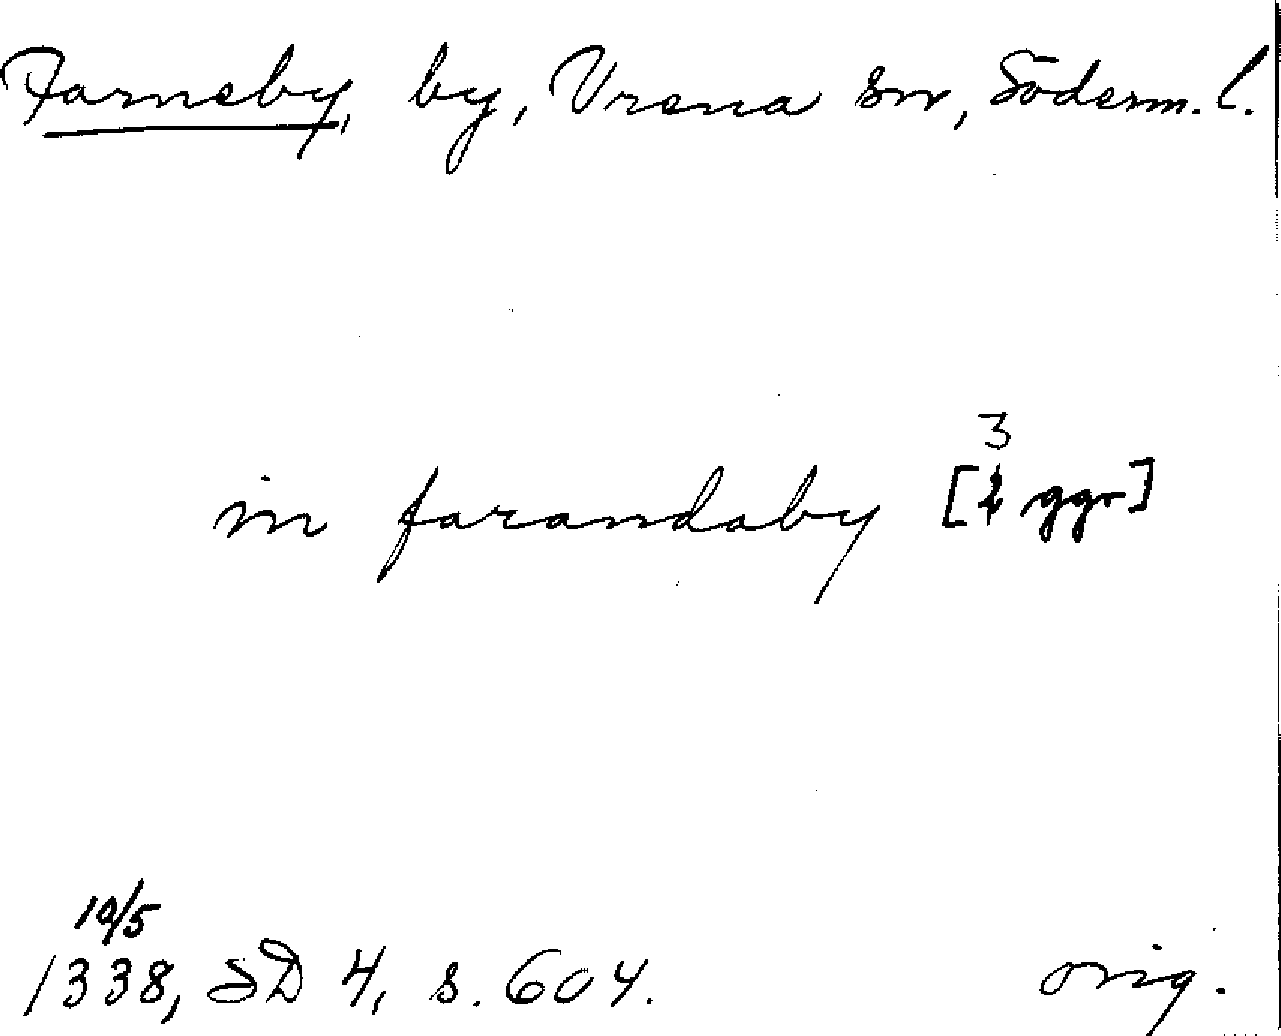 Farneby, by, Vrena sn, Söderm. l.
3
in farandaby [ ggr]
19/5
1338, SD 4, s. 604.
orig.